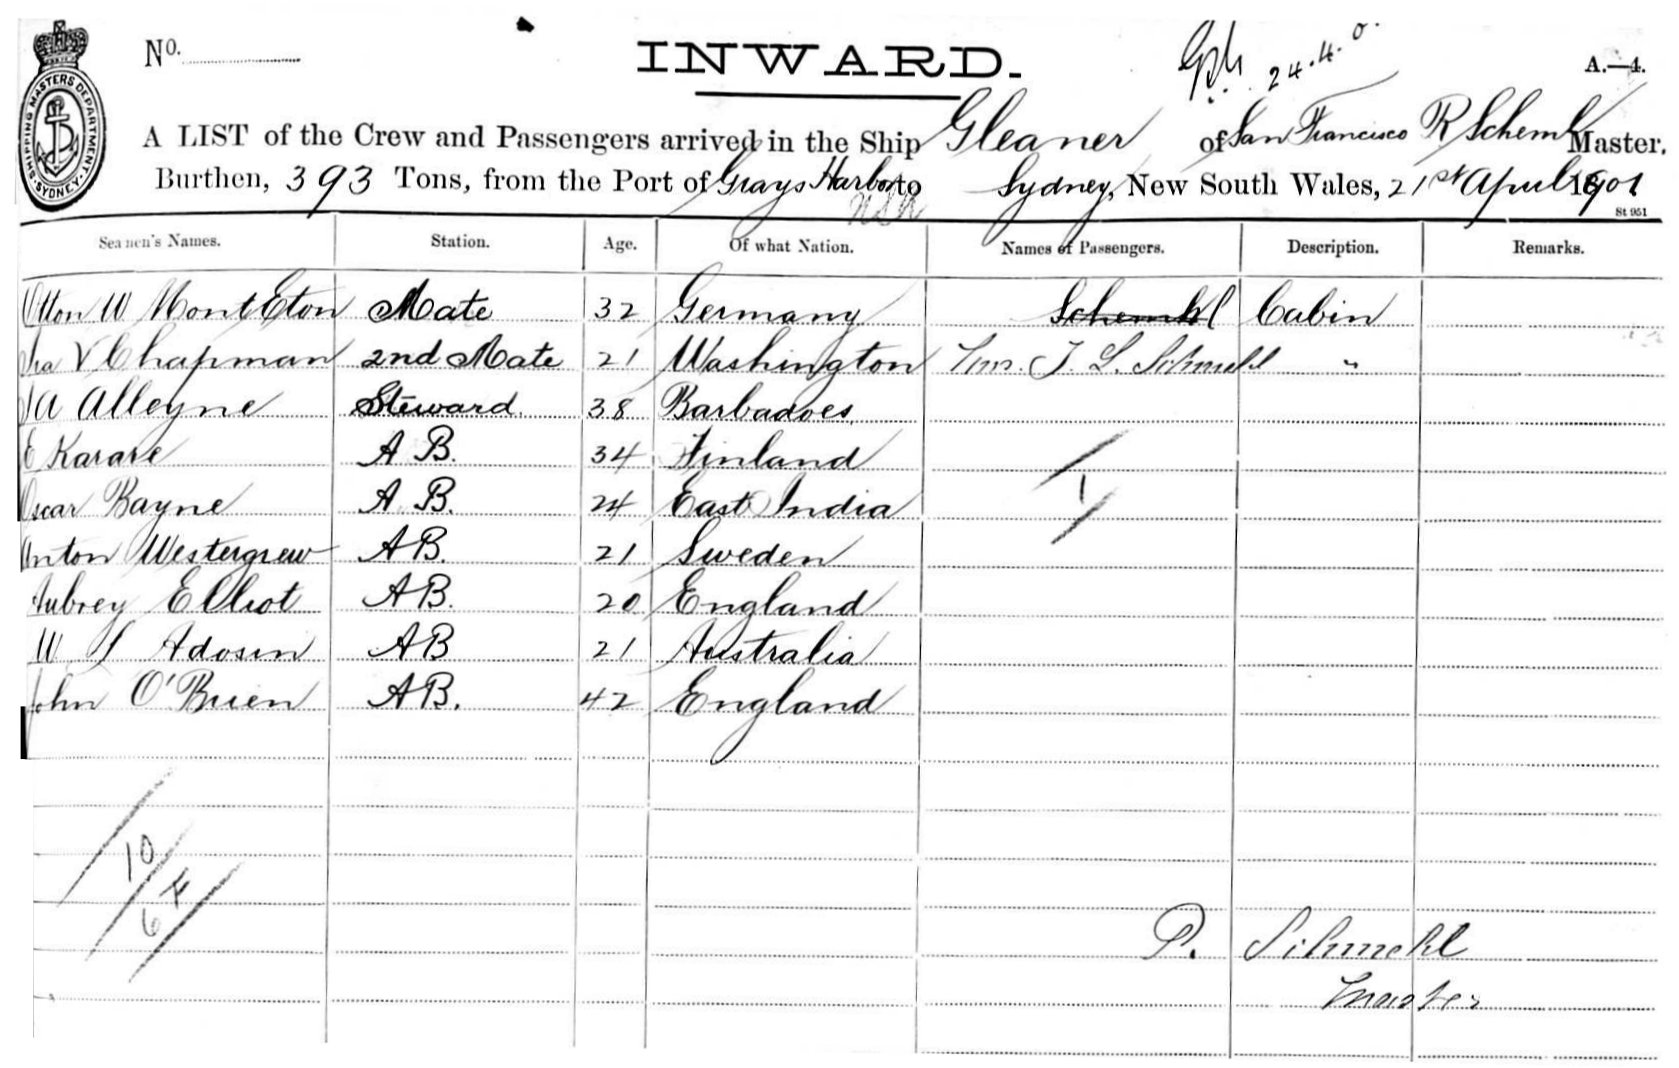 No.
INWARD.
24.4.0.
A.—4.
SHIPPING MASTERS DEPARTMENT. SYDNEY.
A LIST of the Crew and Passengers arrived in the Ship Gleaner of San Francisco R Schemhl Master,
Burthen, 393 Tons, from the Port of Grays Harbor to Sydney, New South Wales, 21st April 1901
USA
St 951
Seamen's Names. Station. Age. Of what Nation. Names of Passengers. Description. Remarks.
Otton W MontEton Mate 32 Germany Schemhl Cabin
Ira V Chapman 2nd Mate 21 Washington T. L. Schmehl "
J A Alleyne Steward 38 Barbadoes
E Karare A B. 34 Finland
Oscar Bayne A. B. 24 East India
1
Anton Westergrew AB. 21 Sweden
Aubrey Elliot AB. 20 England
W. S Adosin AB 21 Australia
John O'Brien AB. 42 England
10
6
P. Schmehl
Master